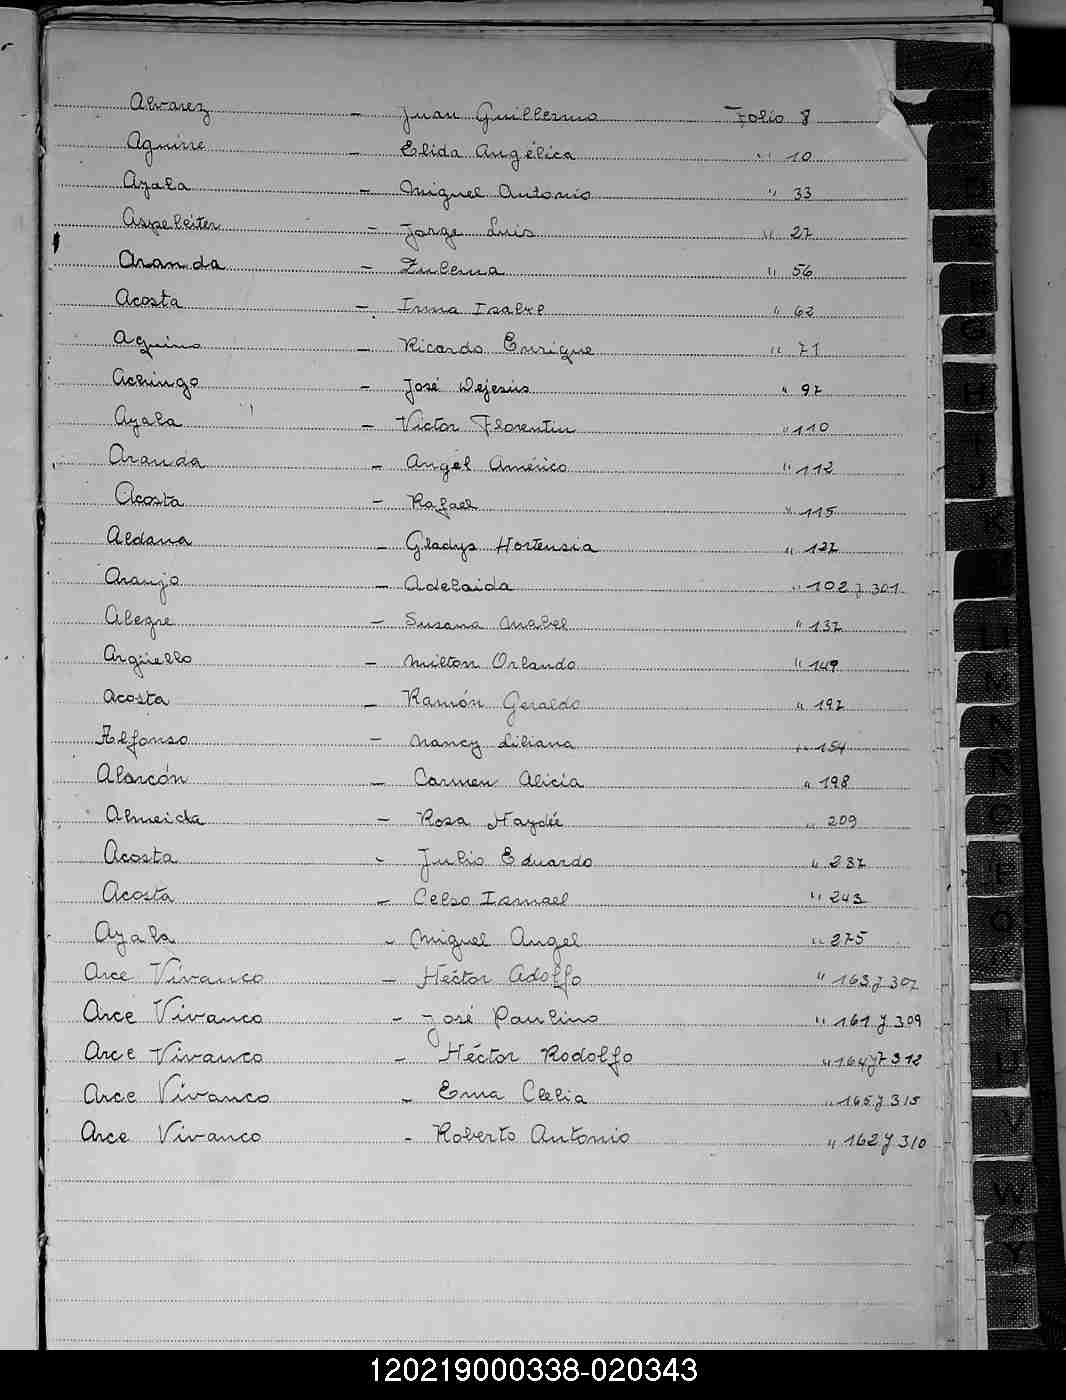 Alvarez - Juan Guillermo Folio 8
Aguirre - Elida Angélica " 10
Ayala - Miguel Antonio " 33
Aspeleiter - Jorge Luis " 27
Aranda - Zulema " 56
Acosta - Irma Isabel " 62
Aquino - Ricardo Enrique " 71
Achingo - José Dejesús " 97
Ayala - Victor Florentin " 110
Aranda - Angel Américo " 112
Acosta - Rafael " 115
Aldana - Gladys Hortensia " 127
Araujo - Adelaida " 102 y 301
Alegre - Susana Mabel " 137
Argüello - Milton Orlando " 149
Acosta - Ramón Geraldo " 197
Alfonso - Nancy Liliana " 154
Alarcón - Carmen Alicia " 198
Almeida - Rosa Haydée " 209
Acosta - Julio Eduardo " 237
Acosta - Celso Ismael " 243
Ayala - Miguel Angel " 275
Arce Vivanco - Héctor Adolfo " 163 y 307
Arce Vivanco - José Paulino " 161 y 309
Arce Vivanco - Héctor Rodolfo " 164 y 312
Arce Vivanco - Ema Clelia " 165 y 315
Arce Vivanco - Roberto Antonio " 162 y 310
G
H
K
M
N
O
U
V
W
Y
120219000338-020343